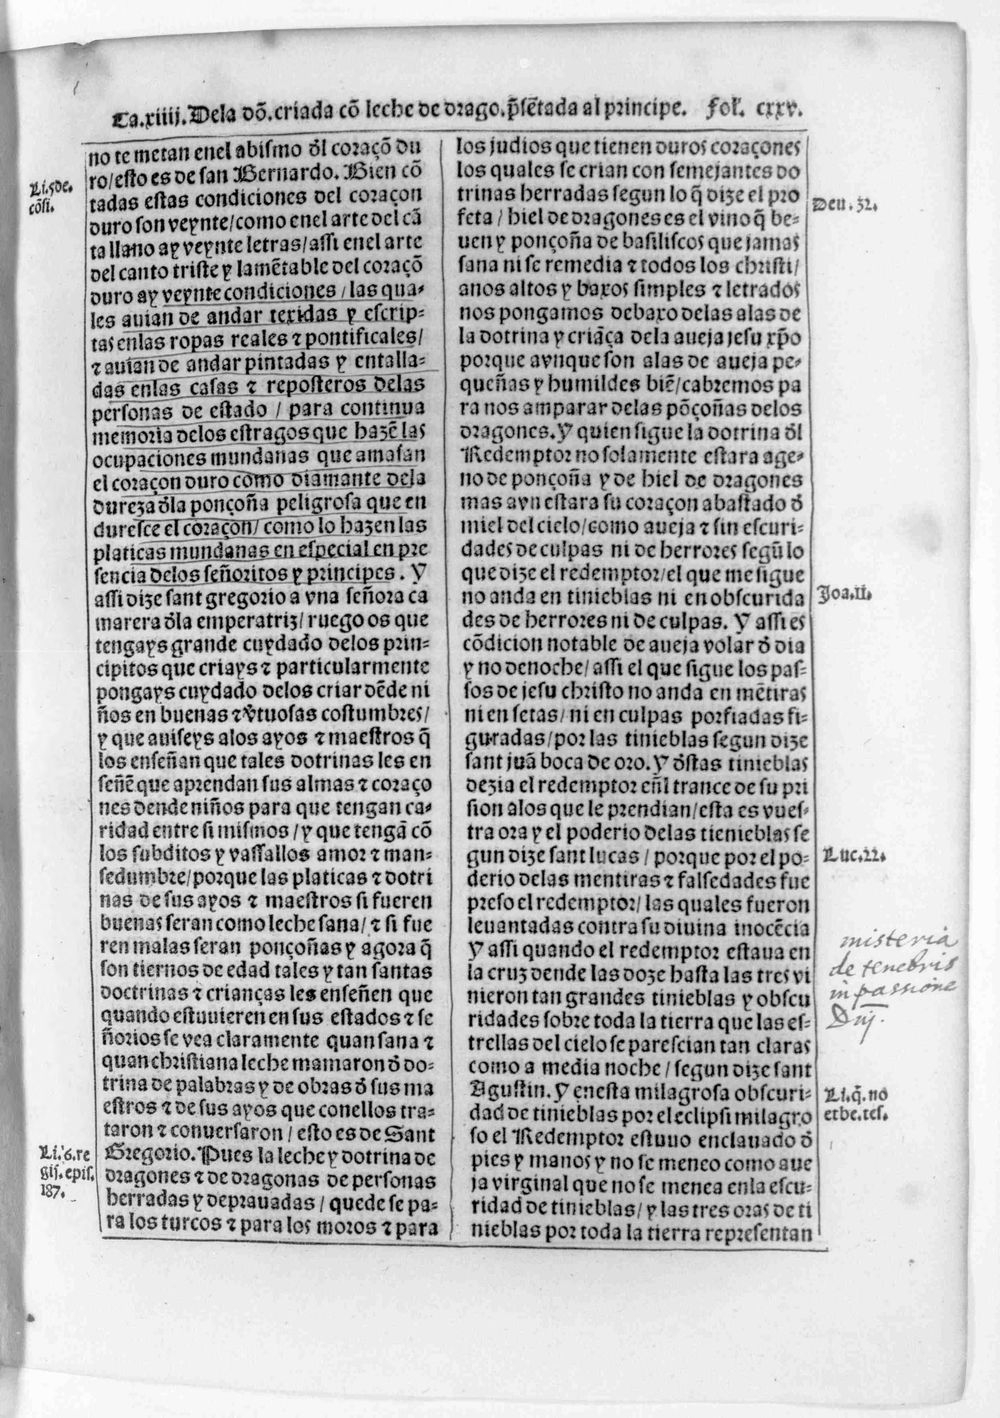 Ca.xiiij. Dela dõ. criada cõ leche de drago. p̃sẽtada al principe. fol. cxxv.
no te metan enel abismo ð̃l coraçõ du
ro/esto es de san Bernardo. Bien cõ
tadas estas condiciones del coraçon
duro son veynte/como enel arte del cã
ta llano ay veynte letras/assi enel arte
del canto triste y lamẽtable del coraçõ
duro ay veynte condiciones/las qua-
les auian de andar texidas y escrip-
tas enlas ropas reales ⁊ pontificales/
⁊ auian de andar pintadas y entalla-
das enlas casas ⁊ reposteros delas
personas de estado / para continua
memoria delos estragos que hazẽ las
ocupaciones mundanas que amasan
el coraçon duro como diamante dela
dureza ð̃la ponçoña peligrosa que en
duresce el coraçon/como lo hazen las
platicas mundanas en especial en pre
sencia delos señoritos y principes. Y
assi dize sant gregorio a vna señora ca
marera ð̃la emperatriz/ruego os que
tengays grande cuydado delos prin-
cipitos que criays ⁊ particularmente
pongays cuydado delos criar dẽde ni
ños en buenas ⁊ ṽtuosas costumbres/
y que auiseys alos ayos ⁊ maestros q̃
los enseñan que tales dotrinas les en
señẽ que aprendan sus almas ⁊ coraço
nes dende niños para que tengan ca-
ridad entre si mismos/y que tengã cõ
los subditos y vassallos amor ⁊ man-
sedumbre/porque las platicas ⁊ dotri
nas de sus ayos ⁊ maestros si fueren
buenas seran como leche sana/⁊ si fue
ren malas seran ponçoñas y agora q̃
son tiernos de edad tales y tan santas
doctrinas ⁊ crianças les enseñen que
quando estuuieren en sus estados ⁊ se
ñorios se vea claramente quan sana ⁊
quan christiana leche mamaron ð̃ do-
trina de palabras y de obras ð̃ sus ma
estros ⁊ de sus ayos que conellos tra-
taron ⁊ conuersaron/esto es de Sant
Gregorio. Pues la leche y dotrina de
dragones ⁊ de dragonas de personas
herradas y deprauadas/quede se pa-
ra los turcos ⁊ para los moros ⁊ para
Li.5 de.
cõsi.
Li.6.re
gis. epis.
187.
los judios que tienen duros coraçones
los quales se crian con semejantes do
trinas herradas segun lo q̃ dize el pro
feta/hiel de dragones es el vino q̃ be-
uen y ponçoña de basiliscos que jamas
sana ni se remedia ⁊ todos los christi/
anos altos y baxos simples ⁊ letrados
nos pongamos debaxo delas alas de
la dotrina y criãça dela aueja jesu xp̃o
porque avnque son alas de aueja pe-
queñas y humildes biẽ/cabremos pa
ra nos amparar delas põçoñas delos
dragones. Y quien sigue la dotrina ð̃l
Redemptor no solamente estara age-
no de ponçoña y de hiel de dragones
mas avn estara su coraçon abastado ð̃
miel del cielo/como aueja ⁊ sin escuri-
dades de culpas ni de herrores segũ lo
que dize el redemptor/el que me sigue
no anda en tinieblas ni en obscurida
des de herrores ni de culpas. Y assi es
cõdicion notable de aueja volar ð̃ dia
y no de noche/assi el que sigue los pas-
sos de jesu christo no anda en mẽtiras
ni en setas/ni en culpas porfiadas fi-
guradas/por las tinieblas segun dize
sant juã boca de oro. Y ð̃stas tinieblas
dezia el redemptor eñl trance de su pri
sion alos que le prendian/esta es vues-
tra ora y el poderio delas tienieblas se
gun dize sant lucas/porque por el po-
derio delas mentiras ⁊ falsedades fue
preso el redemptor/las quales fueron
leuantadas contra su diuina inocẽcia
Y assi quando el redemptor estaua en
la cruz dende las doze hasta las tres vi
nieron tan grandes tinieblas y obscu
ridades sobre toda la tierra que las es-
trellas del cielo se parescian tan claras
como a media noche/segun dize sant
Agustin. Y enesta milagrosa obscuri-
dad de tinieblas por el eclipsi milagro
so el Redemptor estuuo enclauado ð̃
pies y manos y no se meneo como aue
ja virginal que no se menea enla escu-
ridad de tinieblas/y las tres oras de ti
nieblas por toda la tierra representan
Deu.32.
Joa.11.
Luc.22.
misteria
de tenebris
in passione
Dñj.
Li.q̃. no
et be. tes.